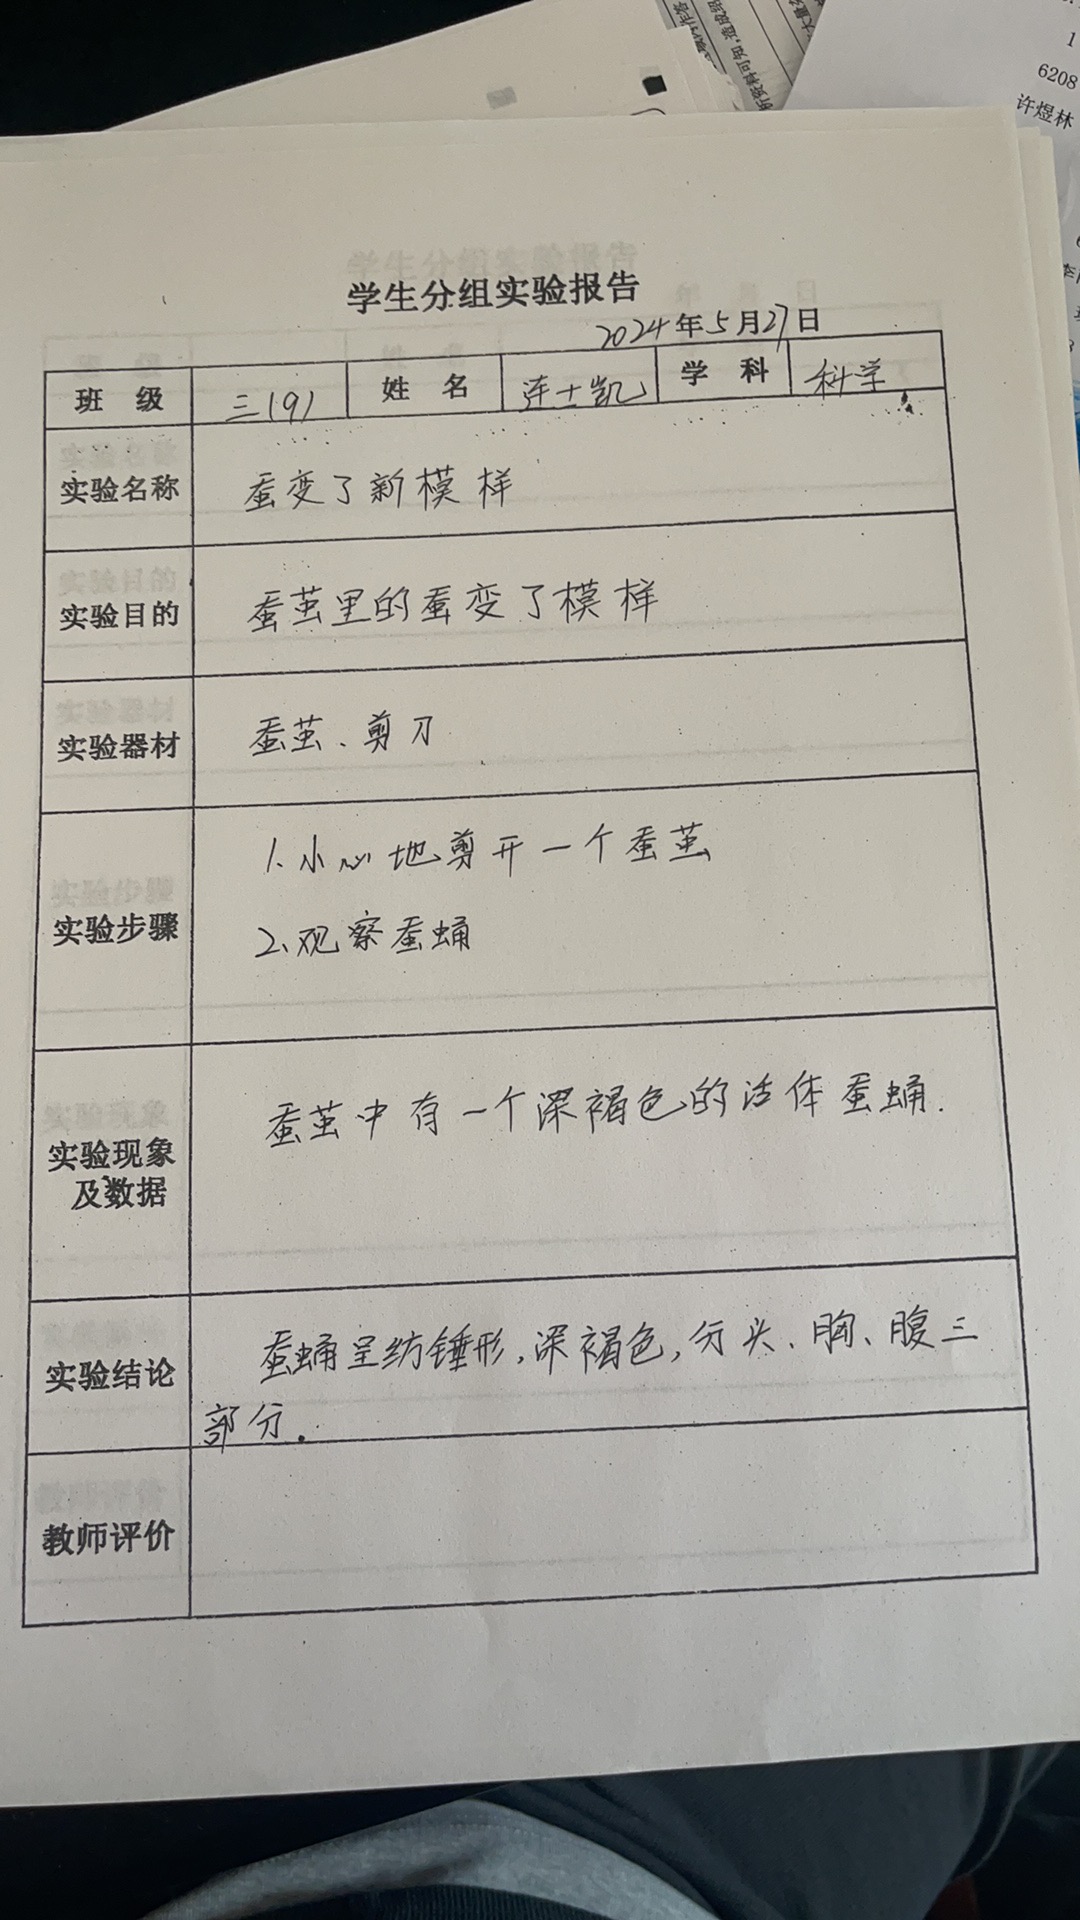 6208
许煜林
学生分组实验报告
2024年5月27日
班 级 三(9) 姓 名 连士凯 学 科 科学
实验名称 蚕变了新模样
实验目的 蚕茧里的蚕变了模样
实验器材 蚕茧、剪刀
实验步骤 1.小心地剪开一个蚕茧
2.观察蚕蛹
实验现象及数据 蚕茧中有一个深褐色的活体蚕蛹.
实验结论 蚕蛹呈纺锤形,深褐色,分头、胸、腹三
部分.
教师评价